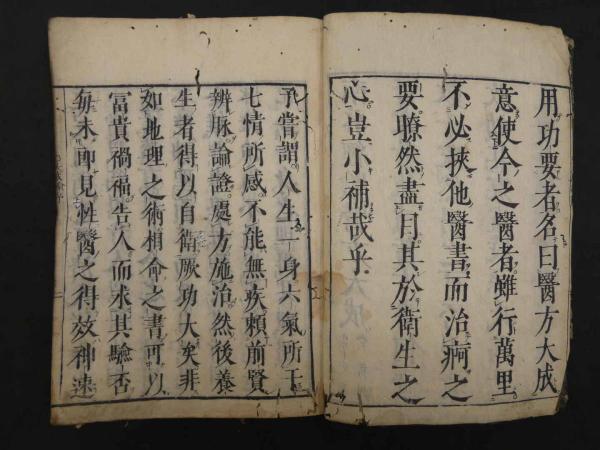 用功要者名曰醫方大成
意使今之醫者雖行萬里
不必挾他醫書而治痾之
要暸然盡目其於衛生之
心豈小補哉乎
予嘗謂人生一身六氣所干
七情所感不能無疾賴前賢
辨脉論證處方施治然後養
生者得以自衛厥功大矣非
如地理之術相命之書可以
冨貴禍福告人而求其驗否
每未即見性醫之得效神速